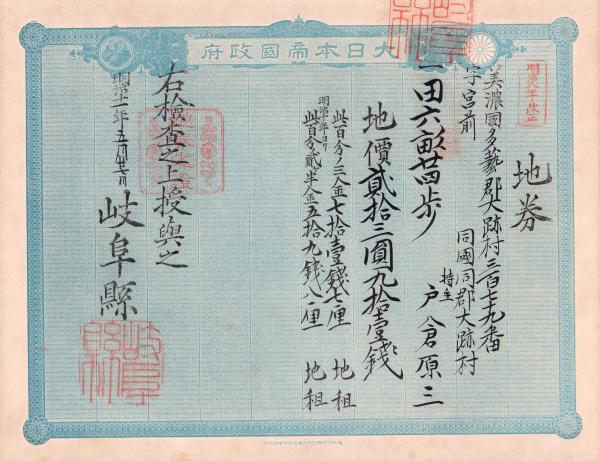 大日本帝國政府
明治八年改正
地券
美濃國多藝郡大跡村三百七十九番
字宮前
同國同郡大跡村
持主 戸倉原三
一田六畝廿四歩
地價貳拾三圓九拾壹錢
此百分ノ三金七拾壹錢七厘 地租
明治十年ヨリ
此百分ノ貳半金五拾九錢八厘 地租
右檢査之上授與之
明治十一年五月廿七日
岐阜縣